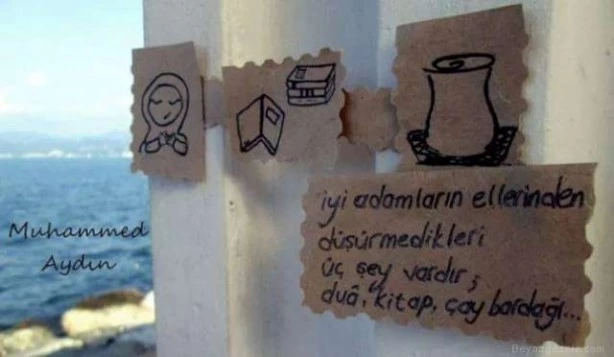 Muhammed
Aydın
iyi adamların ellerinden
düşürmedikleri
üç şey vardır;
duâ, kitap, çay bardağı...